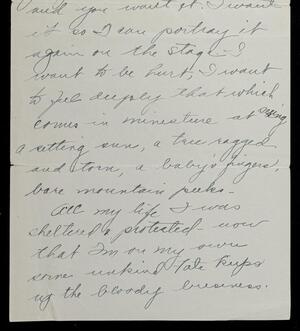 and you want it. I want
it so I can portray it
again on the stage - I
want to be hurt, I want
to feel deeply that which
comes in minesture at seeing
a setting sun, a tree ragged
and torn, a baby's fingers,
bare mountain peeks -
All my life I was
sheltered & protested - now
that I'm on my own
some unkind fate keeps
up the bloody business.